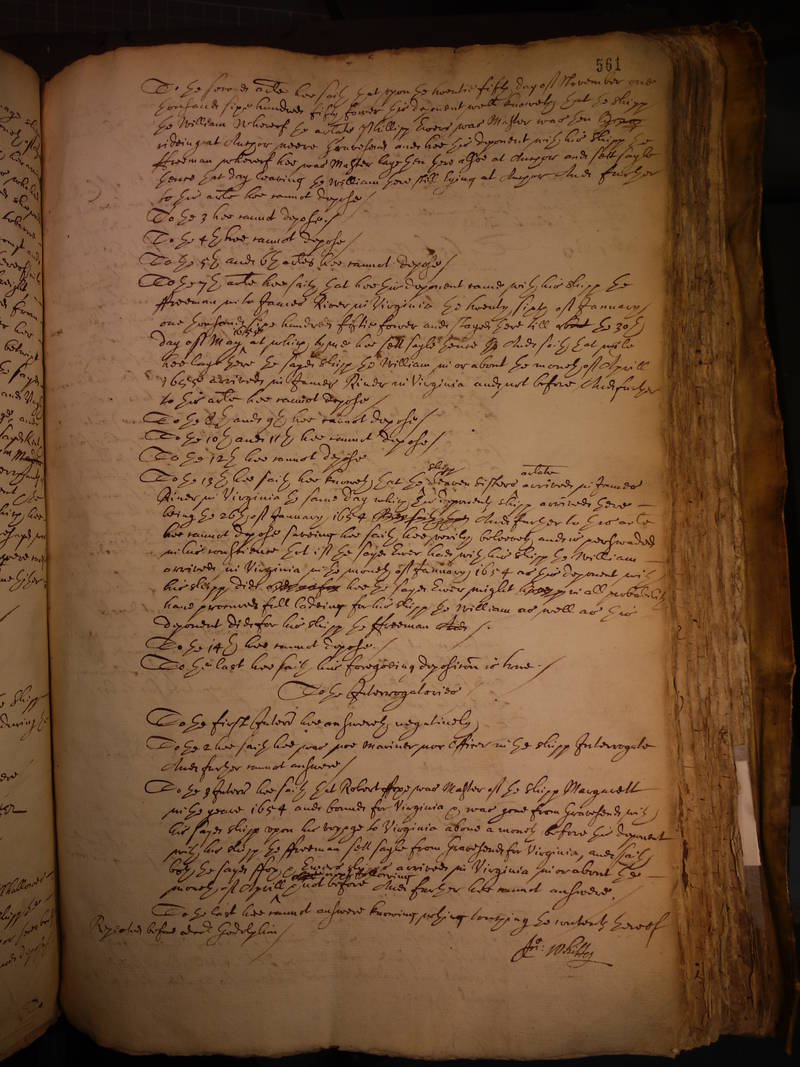 561
To the second article hee saith that upon the twentie fifth day of November one
thousand sixe hundred fifty fower this deponent well knoweth that the shipp
the William whereof the arlate Phillipp Ewers was Master was then
rideing at Anchor neere Gravesend and hee this deponent with his shipp the
ffreeman whereof hee was Master laye then alsoe at Anchor and sett sayle
thence that day leaving the William there still lying at Anchor And further
to this article hee cannot depose /
To the 3 hee cannot depose /
To the 4th hee cannot depose /
To the 5th and 6th articles hee cannot depose /
To the 7th article hee saith that hee this deponent came with his shipp the
ffreeman into James River in Virginia the twenty sixth of January
one thousand sixe hundred fiftie fower and stayed there till the 30th
day of May at which tyme hee sett sayle thence And saith that while
hee laye there the sayd shipp the William in or about the moneth of Aprill
1655 arrived in James River in Virginia and not before And further
to this article hee cannot depose /
To the 8th and 9th hee cannot depose /
To the 10th and 11th hee cannot depose /
To the 12th hee cannot depose
To the 13th hee saith hee knoweth that the shipp Seaven Sisters arlate arrived in James
River in Virginia the same day which this deponents shipp arrived there
being the 26th of January 1654 And further to this article
hee cannot depose saveing hee saith hee verily beleeveth and is perswaded
in his conscience that if the sayd Ewer had with his shipp the William
arrived in Virginia in the moneth of January 1654 as this deponent with
his shipp did hee the sayd Ewer might in all probability
have procured full ladeing for his shipp the William as well as this
deponent did for his shipp the ffreeman /.
To the 14th hee cannot depose /
To the last hee saith his foregoeing deposition is true. /
To the Interrogatories
To the first Interr hee answereth negatively /
To the 2 hee saith hee was noe Mariner nor Officer in the shipp Interrogate
And further cannot answere /
To the 3 Interr hee saith that Robert ffox was Master of the shipp Margarett
in the yeare 1654 and bound for Virginia & was gone from Gravesend with
his sayd shipp upon his voyage to Virginia above a moneth before this deponent
with his shipp the ffreeman sett sayle from Gravesend for Virginia, and saith
both the sayd ffox & Ewers shipps arrived in Virginia in or about the
moneth of Aprill & not before And further hee cannot answere.
To the last hee cannot answere knowing nothing touching the contents thereof
Repeated before doctor Godolphin /
Jno: Whitty